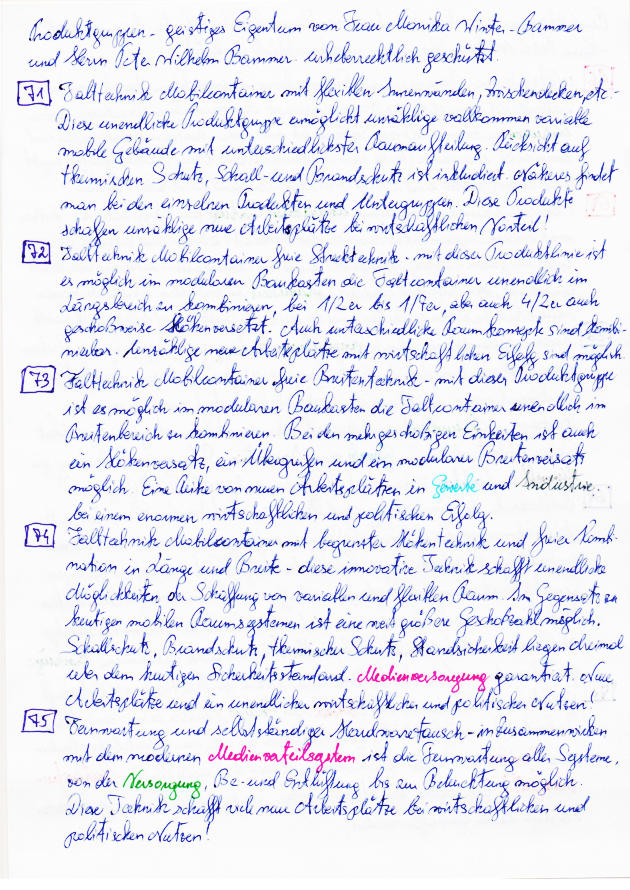 Produktgruppen - geistiges Eigentum von Frau Monika Winter-Bammer
und Herrn Peter Wilhelm Bammer urheberrechtlich geschützt.
71 Falttechnik Mobilcontainer mit flexiblen Innenwänden, Zwischendecken, etc. -
Diese unendliche Produktgruppe ermöglicht unzählige vollkommen variable
mobile Gebäude mit unterschiedlichster Raumaufteilung. Rücksicht auf
thermischen Schutz, Schall- und Brandschutz ist inkludiert. Näheres findet
man bei den einzelnen Produkten und Untergruppen. Diese Produkte
schaffen unzählige neue Arbeitsplätze bei wirtschaftlichen Vorteil!
72 Falttechnik Mobilcontainer freie Strecktechnik - mit dieser Produktlinie ist
es möglich im modularen Baukasten die Faltcontainer unendlich im
Längsbereich zu kombinieren, bei 1/2er bis 1/7er, aber auch 4/2er auch
geschoßweise Höhenversetzt. Auch unterschiedliche Raumkonzepte sind kombi-
nierbar. Unzählige neue Arbeitsplätze mit wirtschaftlichen Erfolg sind möglich.
73 Falttechnik Mobilcontainer freie Breitentechnik - mit dieser Produktgruppe
ist es möglich im modularen Baukasten die Faltcontainer unendlich im
Breitenbereich zu kombinieren. Bei den mehrgeschoßigen Einheiten ist auch
ein Höhenversatz, ein Übergreifen und ein modularer Breitenversatz
möglich. Eine Reihe von neuen Arbeitsplätzen in Gewerbe und Industrie
bei einem enormen wirtschaftlichen und politischen Erfolg.
74 Falttechnik Mobilcontainer mit begrenzter Höhentechnik und freier Kombi-
nation in Länge und Breite - diese innovative Technik schafft unendliche
Möglichkeiten der Schaffung von variablen und flexiblen Raum. Im Gegensatz zu
heutigen mobilen Raumsystemen ist eine weit größere Geschoßzahl möglich.
Schallschutz, Brandschutz, thermischer Schutz, Standsicherheit liegen dreimal
über dem heutigen Sicherheitsstandard. Medienversorgung garantiert. Neue
Arbeitsplätze und ein unendlicher wirtschaftlicher und politischer Nutzen!
75 Fernwartung und selbstständiger Hardwaretausch - in Zusammenwirken
mit dem modernen Medienverteilsystem ist die Fernwartung aller Systeme,
von der Versorgung, Be- und Entlüftung bis zur Beleuchtung möglich.
Diese Technik schafft viele neue Arbeitsplätze bei wirtschaftlichen und
politischen Nutzen!